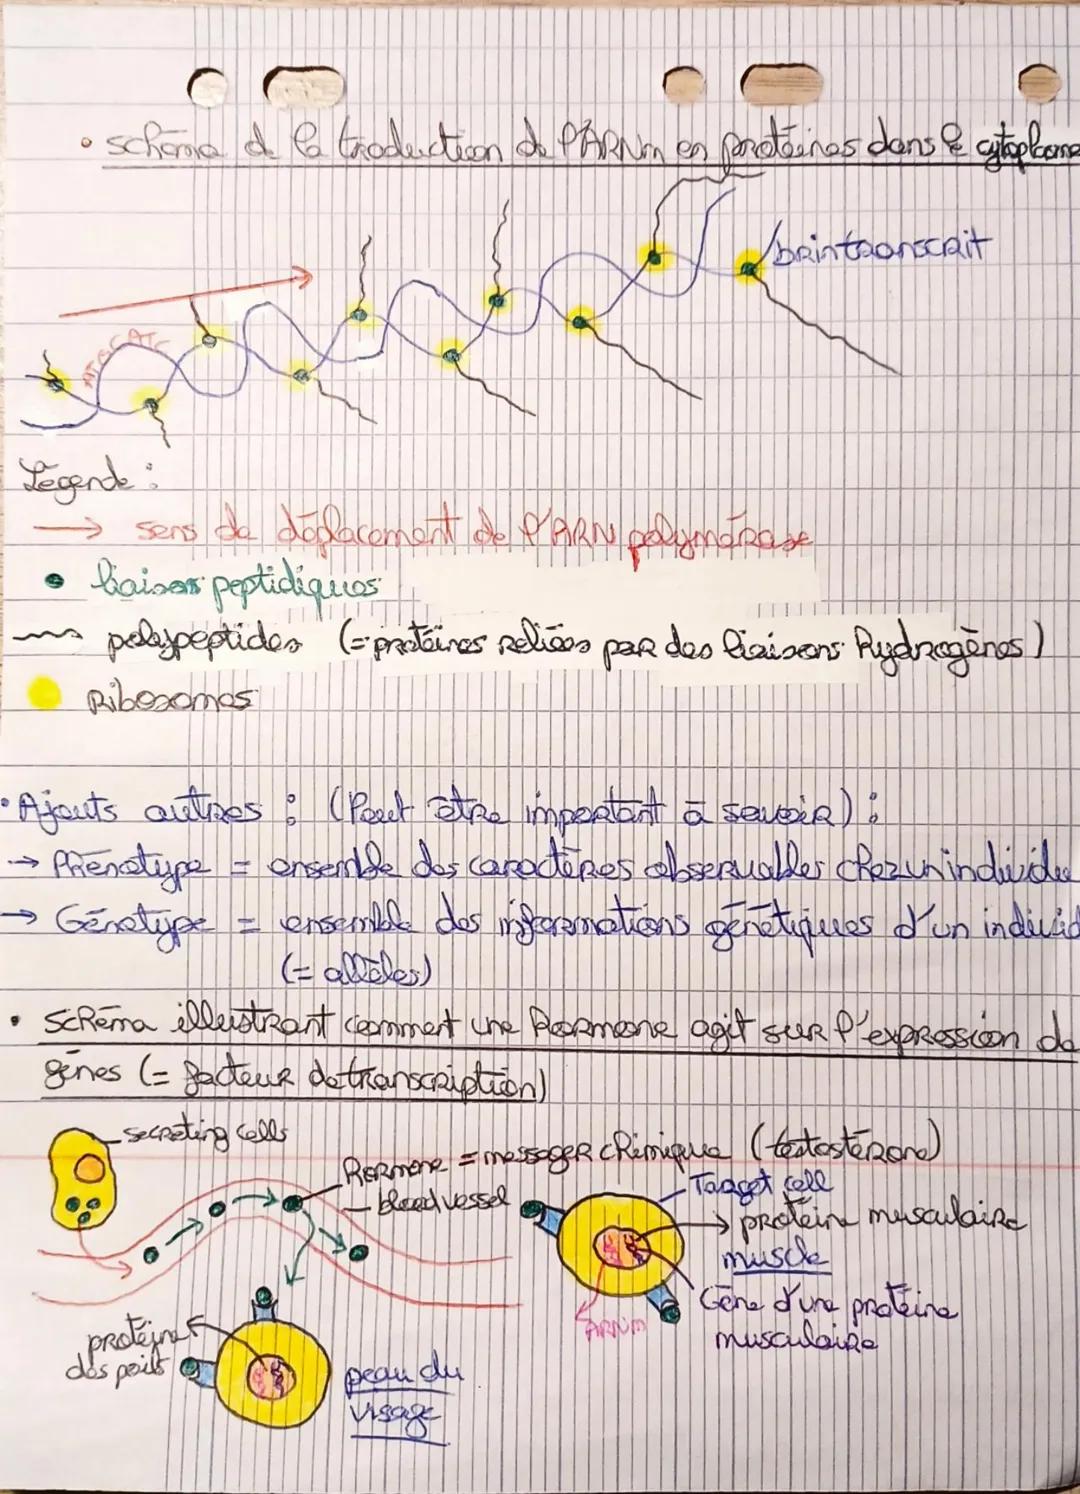 • schéma de la traduction de l'ARNm en protéines dans le cytoplasme
brin transcrit
ATGCATC
Légende :
→ sens de déplacement de l'ARN polymérase
• liaisons peptidiques
polypeptides (= protéines reliées par des liaisons hydrogènes)
Ribosomes
• Ajouts autres : (Peut être important à savoir) :
→ Phénotype = ensemble des caractères observables chez un individu
→ Génotype = ensemble des informations génétiques d'un individ
(= allèles)
• Schéma illustrant comment une hormone agit sur l'expression de
gènes (= facteur de transcription)
secreting cells
Hormone = messager chimique (testostérone)
blood vessel
Target cell
→ protéine musculaire
muscle
Gène d'une protéine
musculaire
ARNm
protéine
des poils
peau du
visage